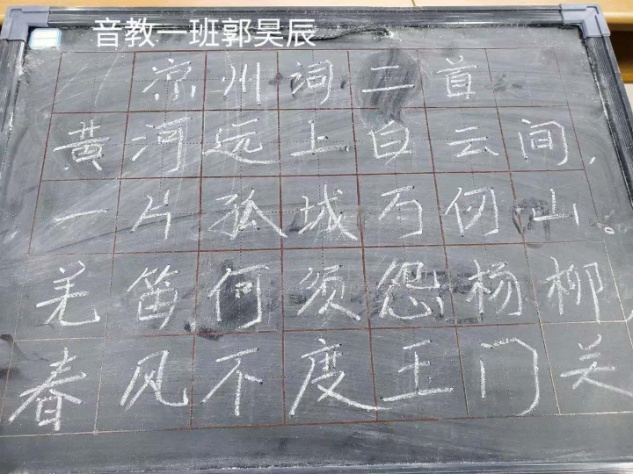 音教一班郭昊辰
凉州词二首
黄河远上白云间，
一片孤城万仞山。
羌笛何须怨杨柳
春风不度王门关